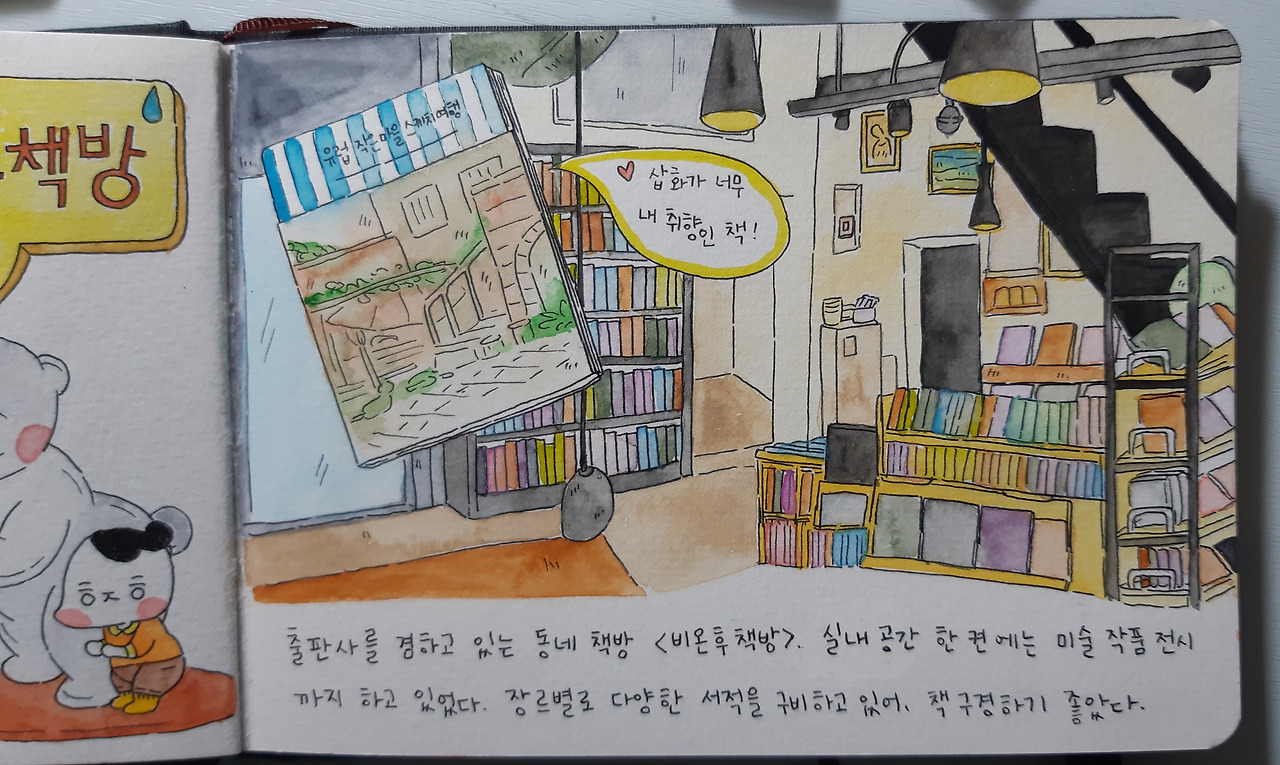 책방
유럽 작은마을 스케치여행
삽화가 너무
내 취향인 책!
ㅎㅈㅎ
출판사를 겸하고 있는 동네 책방 <비온후책방>. 실내 공간 한 켠에는 미술 작품 전시
까지 하고 있었다. 장르별로 다양한 서적을 구비하고 있어, 책 구경하기 좋았다.